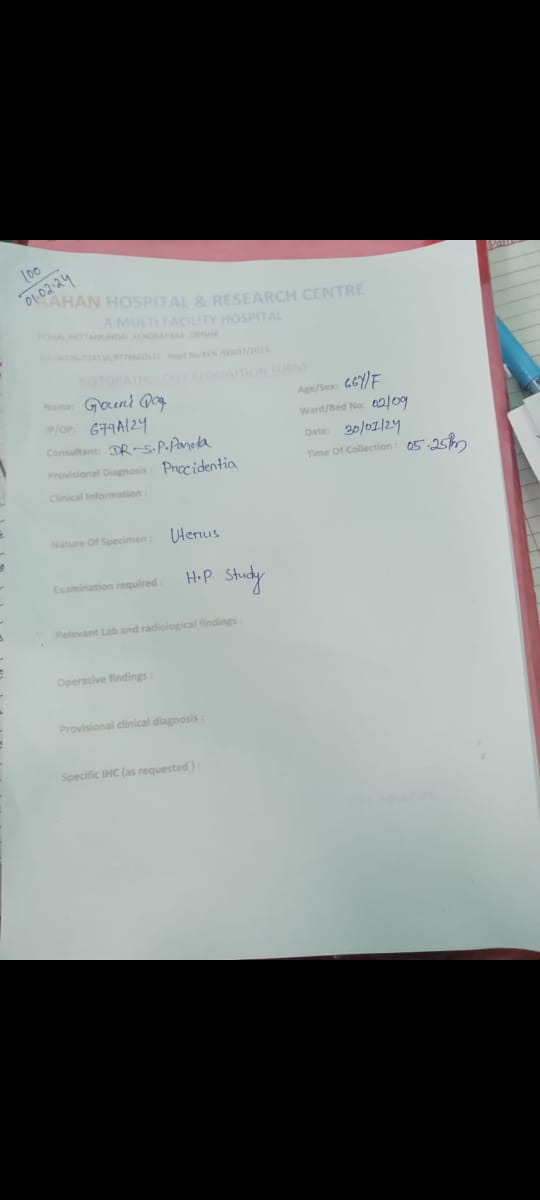 100
01.02.24
AAHAN HOSPITAL & RESEARCH CENTRE
A MULTI FACILITY HOSPITAL
HISTOPATHOLOGY REQUISITION FORM
Name: Gouri Age/Sex: 66Y/F
IP/OP: 679A/24 Ward/Bed No: 02/09
Consultant: DR-S.P.Panda Date: 30/01/24
Provisional Diagnosis: Procidentia Time Of Collection: 05.25Pm
Clinical Information:
Nature Of Specimen: Uterus
Examination required: H.P. Study
Relevant Lab and radiological findings:
Operative findings:
Provisional clinical diagnosis:
Specific IHC (as requested):